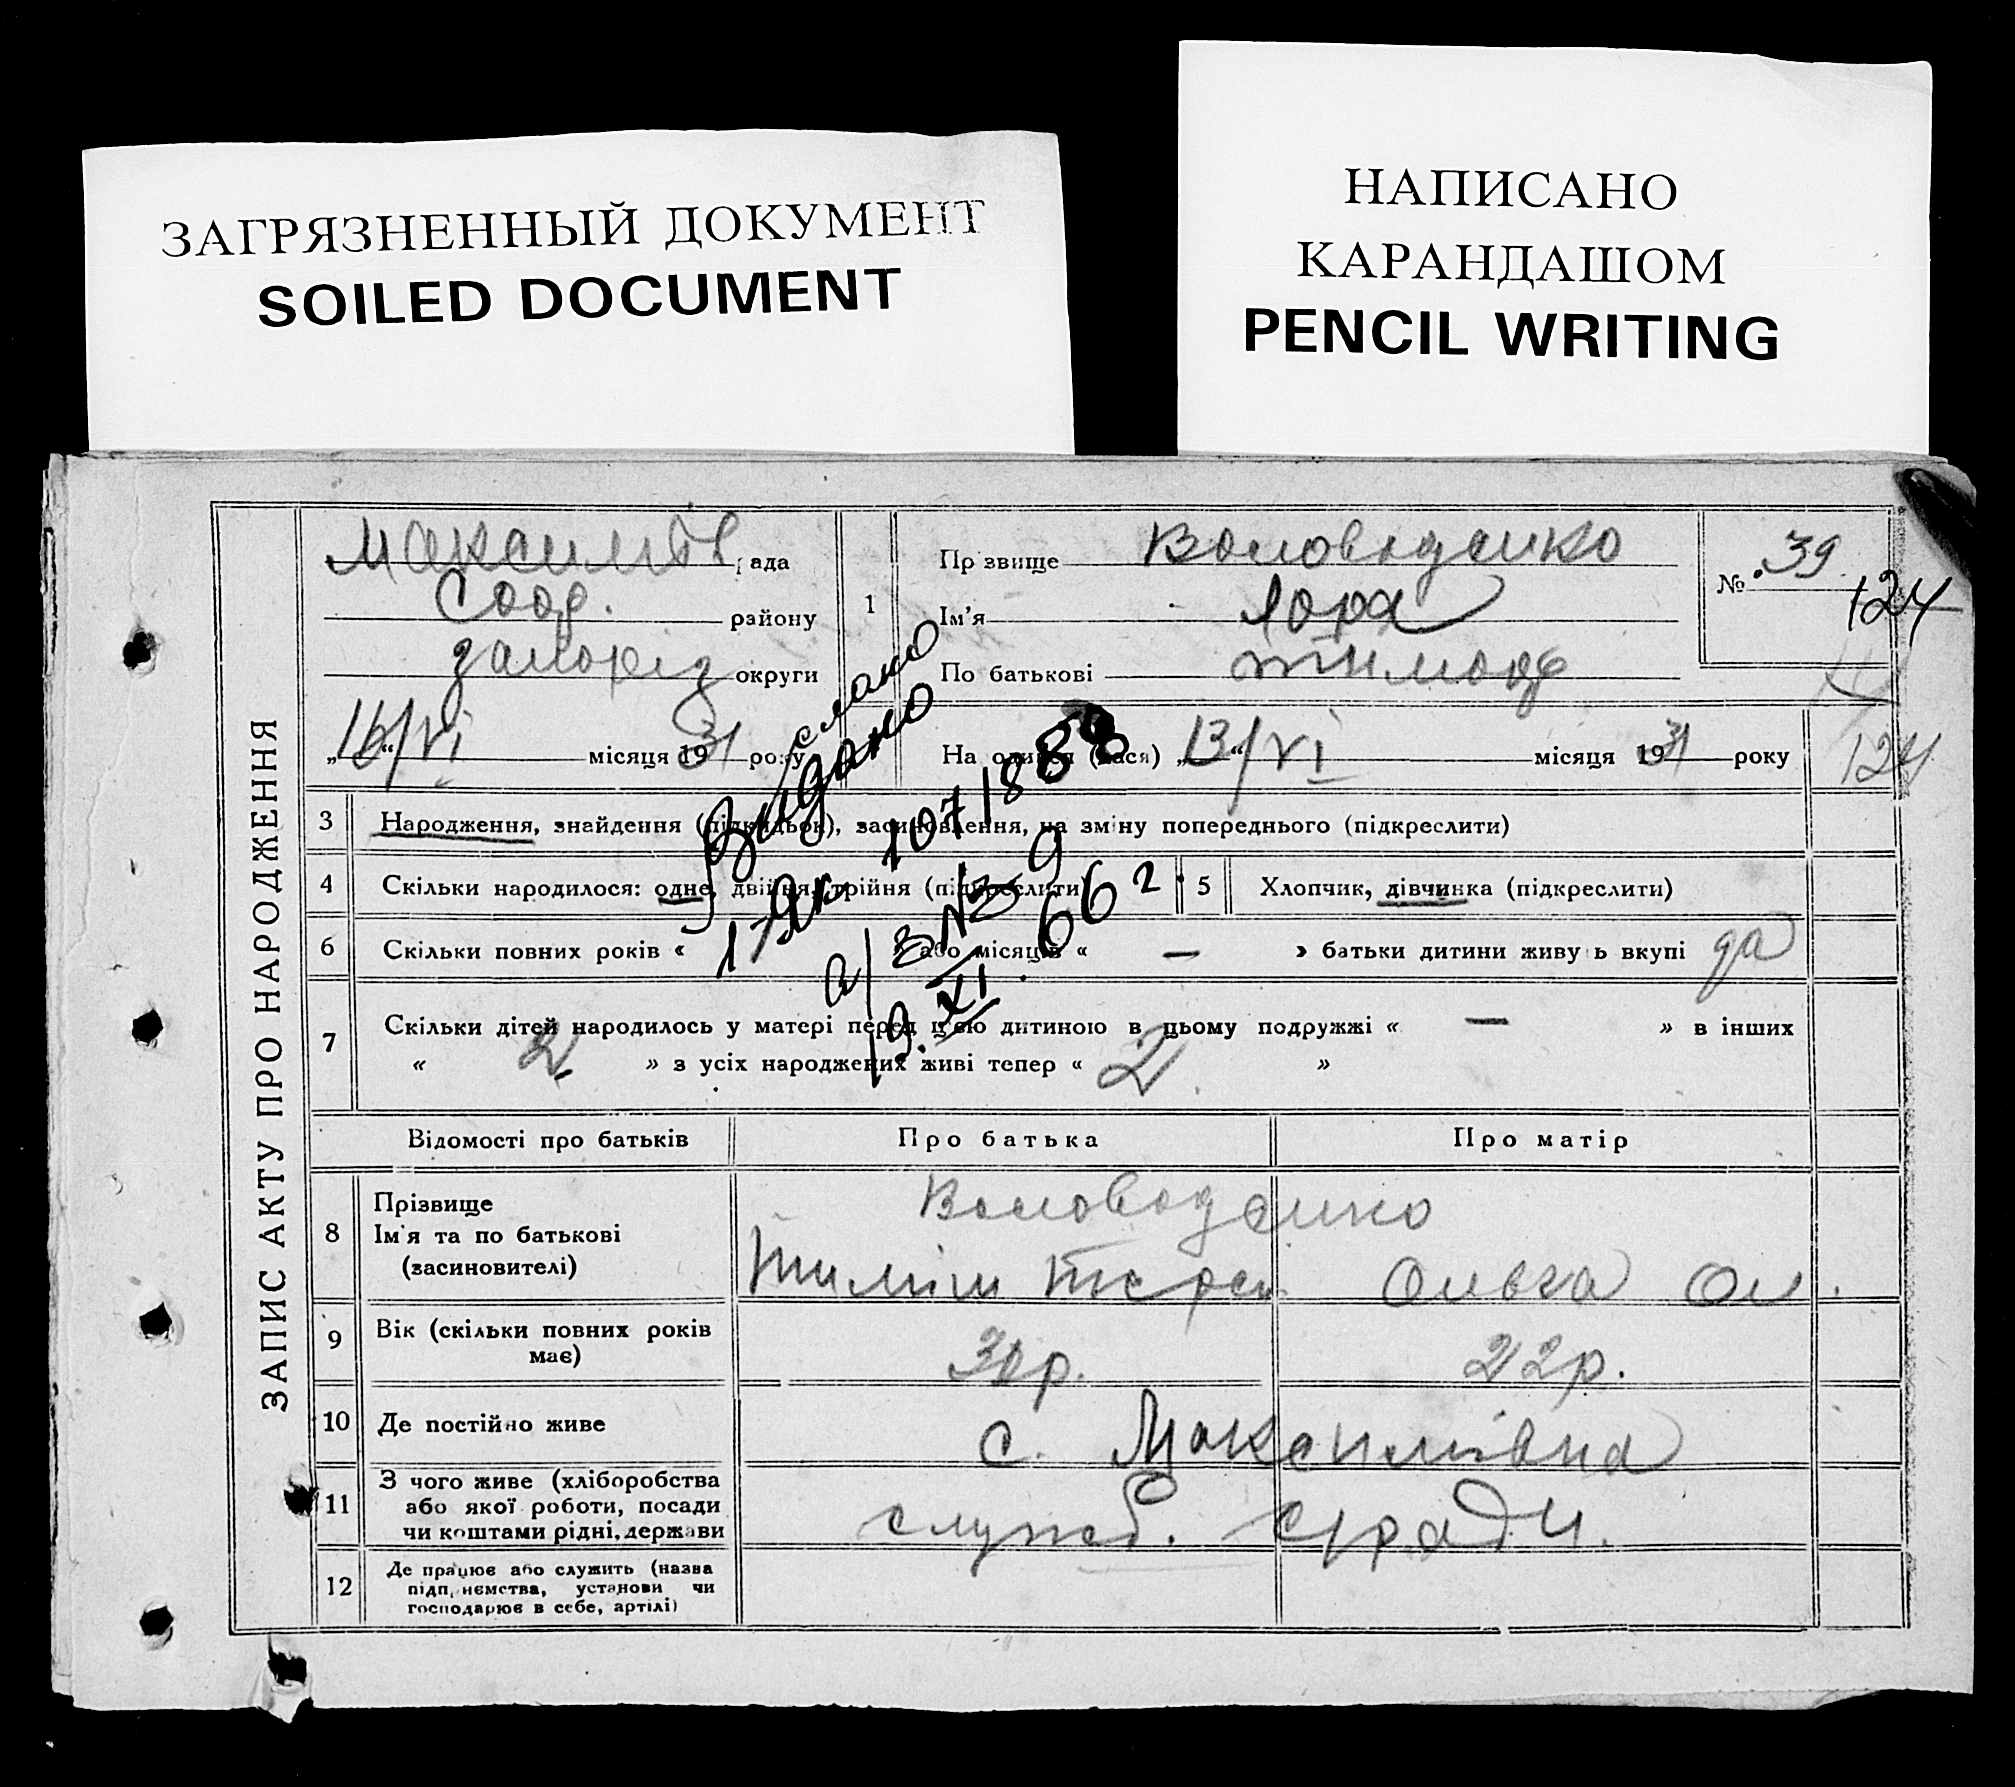 ЗАГРЯЗНЕННЫЙ ДОКУМЕНТ
SOILED DOCUMENT
НАПИСАНО
КАРАНДАШОМ
PENCIL WRITING
ЗАПИС АКТУ ПРО НАРОДЖЕННЯ
рада
району
округи
16/VI місяця 1931 року
1
Прізвище Воловоденко
Ім'я Лора
По батькові Тимоф
№ 39
124
На одинся (лася) „13“/VI місяця 1931 року
124
Видано
107/88
662
19.XI
3 Народження, знайдення (підкидьок), засиновлення, на зміну попереднього (підкреслити)
4 Скільки народилося: одне, двійня, трійня (підкреслити)
5 Хлопчик, дівчинка (підкреслити)
6 Скільки повних років « або місяців « — » батьки дитини живуть вкупі да
7 Скільки дітей народилось у матері перед цією дитиною в цьому подружжі « — » в інших
« 2 » з усіх народжених живі тепер « 2 »
Відомості про батьків Про батька Про матір
8 Прізвище
Ім'я та по батькові
(засиновителі)
Воловоденко
Ольга Ол.
9 Вік (скільки повних років
має)
22р.
10 Де постійно живе с. Максимівка
11 З чого живе (хліборобства
або якої роботи, посади
чи коштами рідні, держави
служб.
12 Де працює або служить (назва
підприємства, установи чи
господарює в себе, артілі)